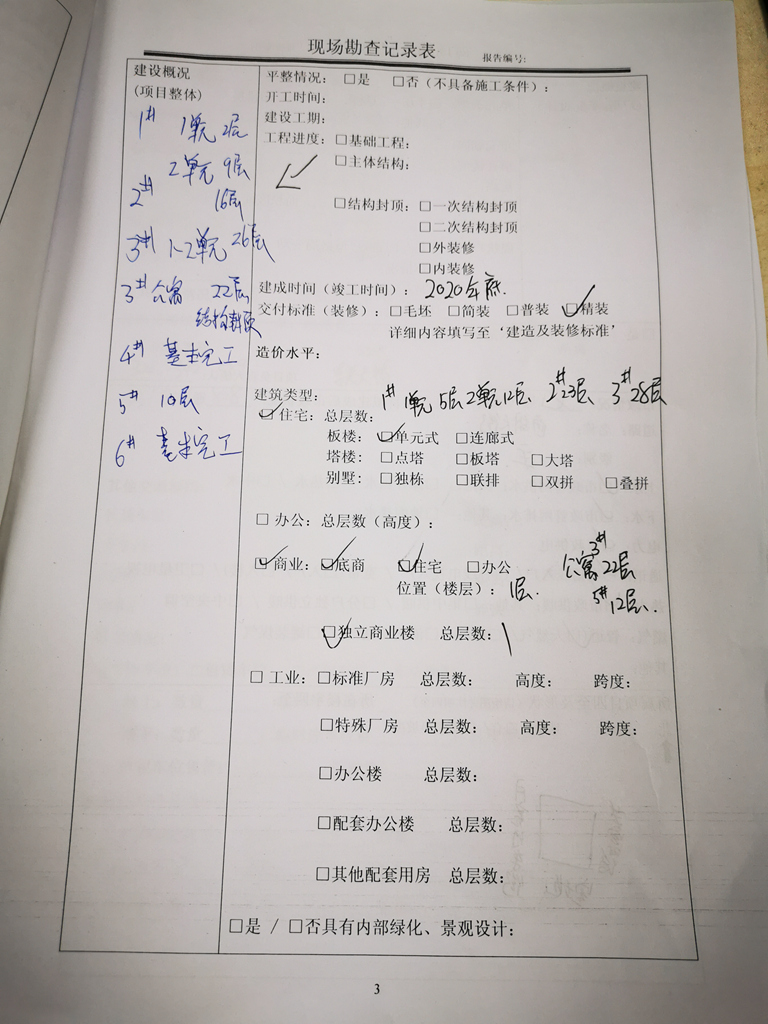 现场勘查记录表
报告编号:
建设概况
(项目整体)
1# 1单元 2层
2单元 9层
2# 16层
3# 1-2单元 26层
3#公寓 22层
结构封顶
4# 基本完工
5# 10层
6# 基本完工
平整情况: □是 □否(不具备施工条件):
开工时间:
建设工期:
工程进度: □基础工程:
□主体结构:
□结构封顶: □一次结构封顶
□二次结构封顶
□外装修
□内装修
建成时间(竣工时间): 2020年底.
交付标准(装修): □毛坯 □简装 □普装 ☑精装
详细内容填写至‘建造及装修标准’
造价水平:
建筑类型:
1# 1单元 5层 2单元 12层 2# 23层 3# 28层
☑住宅: 总层数:
板楼: ☑单元式 □连廊式
塔楼: □点塔 □板塔 □大塔
别墅: □独栋 □联排 □双拼 □叠拼
□ 办公: 总层数(高度):
☑商业: ☑底商 ☑住宅 □办公
3#
公寓 22层
位置(楼层): 1层.
5# 12层.
☑独立商业楼 总层数: 1
□ 工业: □标准厂房 总层数: 高度: 跨度:
□特殊厂房 总层数: 高度: 跨度:
□办公楼 总层数:
□配套办公楼 总层数:
□其他配套用房 总层数:
□是 / □否具有内部绿化、景观设计:
3